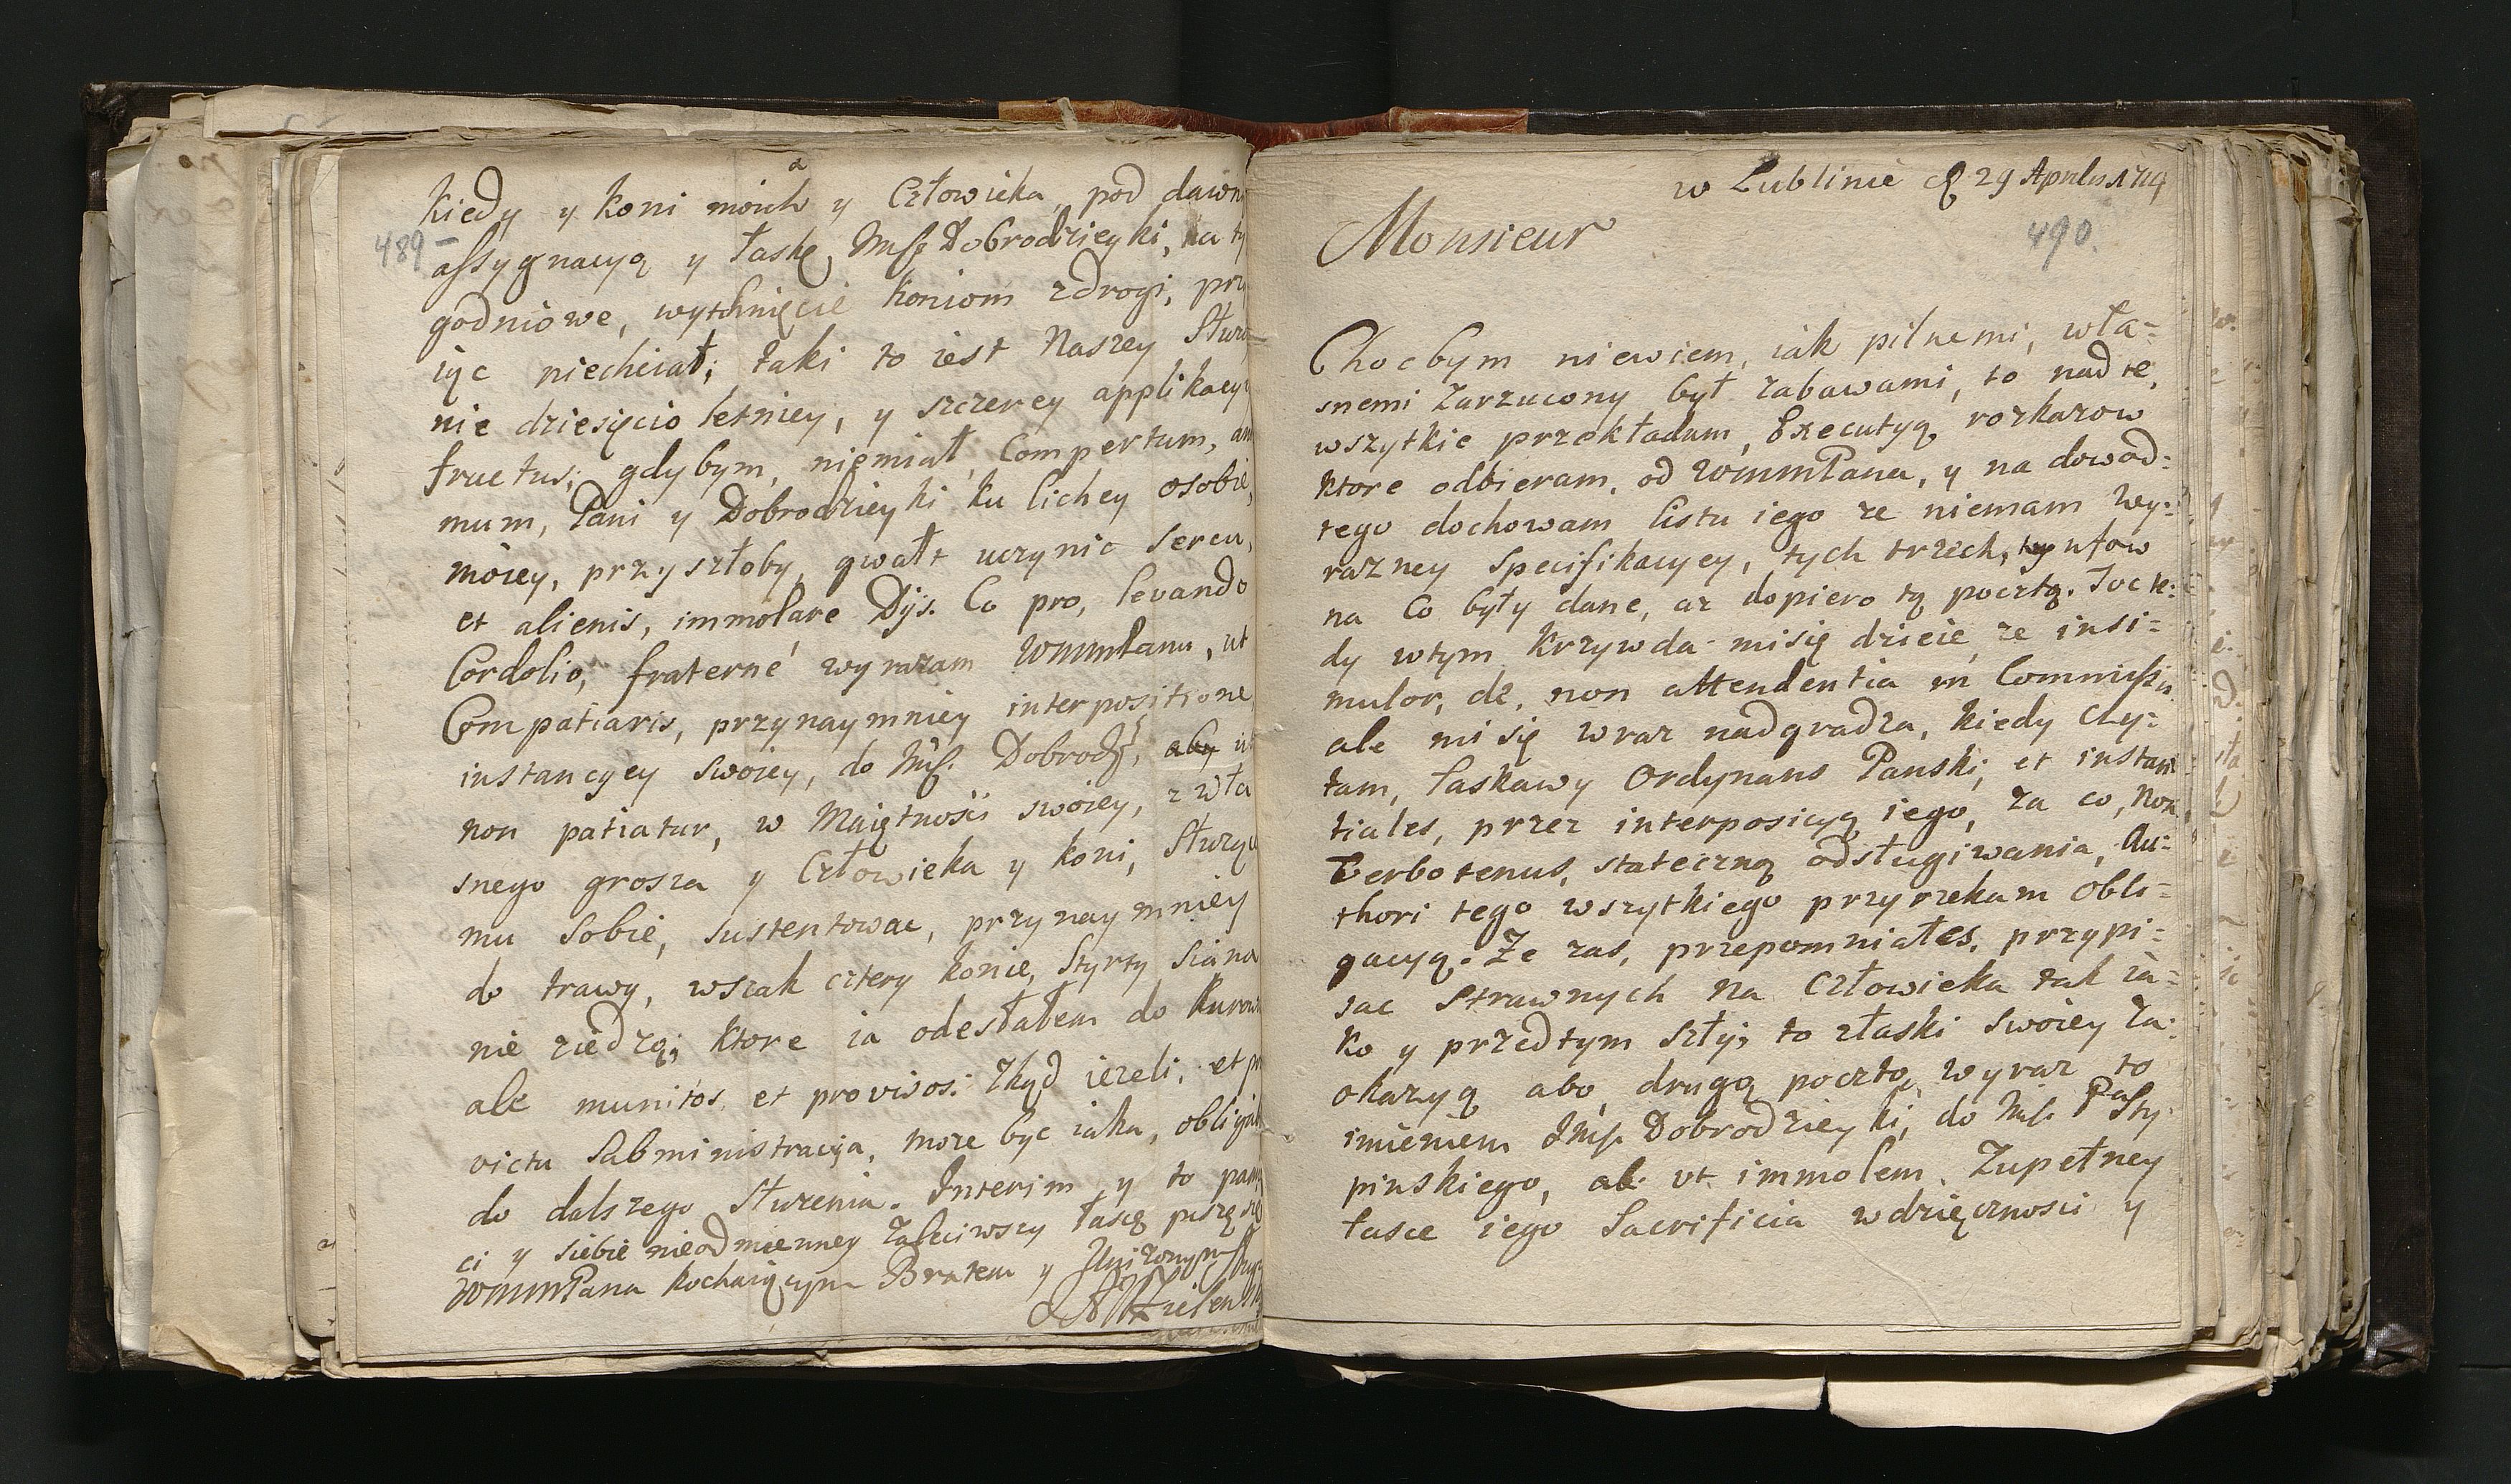 kiedy y koni moich y Człowieka, pod dawn
489
assygnacyą y łaskę Jmsę Dobrodzieyki, na ty
godniowe, wytchnięcie koniom zdrogi, przy
iąc niechciał; taki to iest Naszey Służ
nie dziesięcio letniey, y szczerey applikacyi
fructus; gdybym, niemiał, Compertum, ani
mum, Pani y Dobrodzieyki ku lichey osobie,
moiey, przyszłoby, gwałt uczynic sercu,
et alienis, immolare Dijs. Co pro, levando
Cordolio, fraternè wyrazam WmmPanu, ut
Compatiaris, przynaymniey interpositione
instancyey swoiey, do Jmsę. Dobrodź, aby
non patiatur, w Maiętnosci swoiey, z wła
snego grosza y Człowieka y koni, służą
mu Sobie, sustentowac, przynaymniey
do trawy, wszak cztery konie, Styrty Siana
nie ziedzą; ktore ia odesłałem do Kurow
ale munitos et provisos. Zkąd iezeli,
victu Sabministracija, moze byc iaka,
do dalszego służenia. Interim y to pam
ci y siebie nieodmienney zaleciwszy łasce piszę się
WmmPana kochaiącym Bratem y Uniżonym
w Lublinie d 29 Aprilis 1714
490.
Monsieur
Chocbym niewiem, iak pilnemi, wła=
snemi Zarzucony był zabawami, to nad te,
wszytkie przekładam, Executyą, rozkazow
ktore odbieram, od WmmPana, y na dowod=
tego dochowam listu iego ze niemam wy=
razney specifikacyey, tych trzech, tynfow
na Co były dane, az dopiero tą pocztą. Toc te=
dy wtym krzywda misię dzieie, ze insi=
mulor, de, non attendentia in Commissis
ale mi się wraz nadgradza, kiedy czy=
tam, łaskawy Ordynans Panski, et instan
tiales, przez interposicyą iego, za co, non
verbotenus, stateczną odsługiwania, Au=
thori tego wszytkiego przyrzekam obli=
gacyą. Ze zas, przepomniałes, przypi=
sac strawnych na Człowieka tak ia=
ko y przedtym szły; to złaski swoiey za
okazyą abo, drugą pocztą, wyraz to
imieniem Jmsę Dobrodzieyki, do Jmsę. P Sty
pinskiego, abi ut immolem, Zupełney
łasce iego Sacrificia wdzięcznosci y